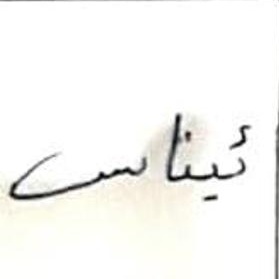 ئيناس